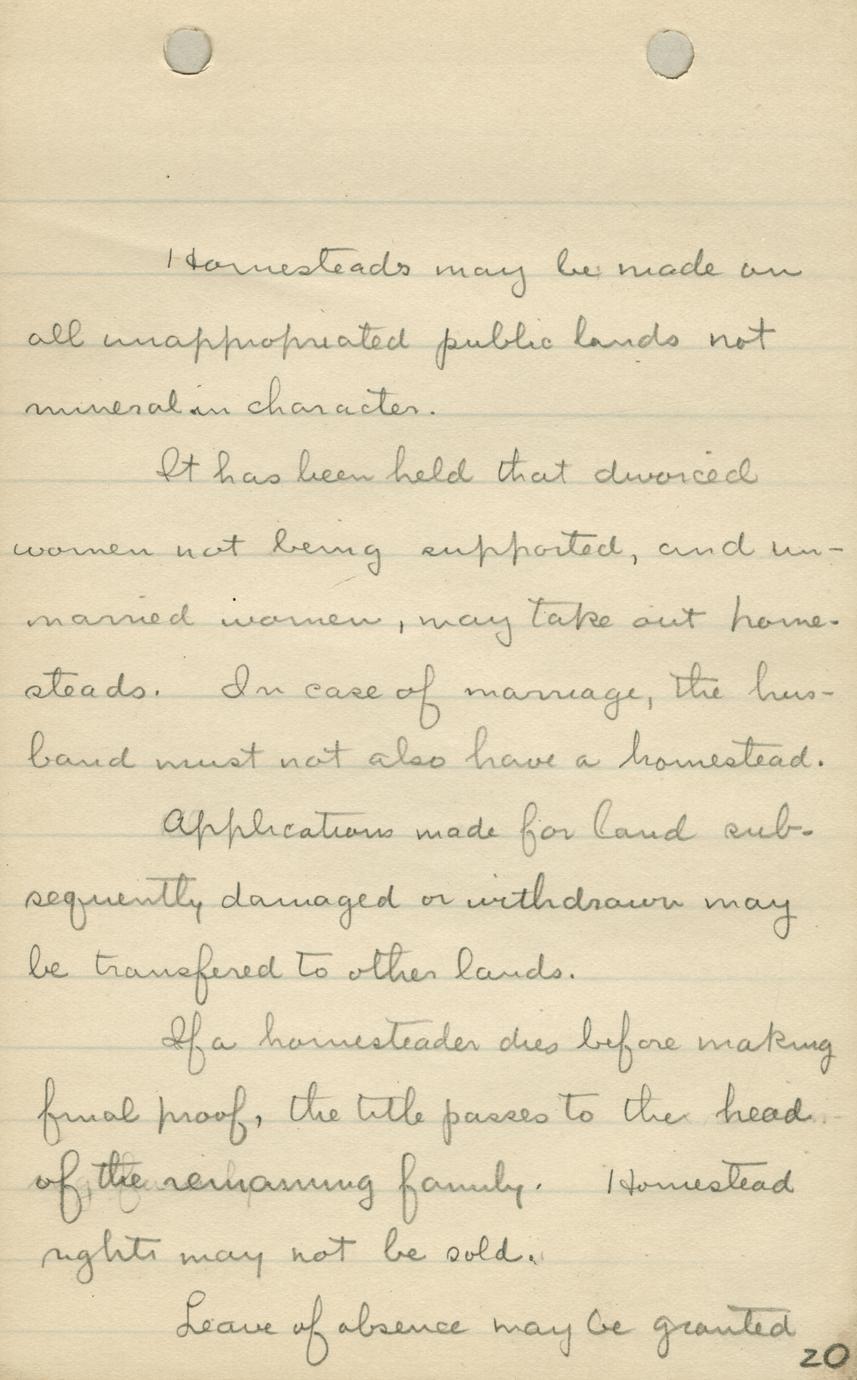 Homesteads may be made on
all unappropriated public lands not
mineral in character.
It has been held that divorced
women not being supported, and un-
married women, may take out home-
steads. In case of marriage, the hus-
band must not also have a homestead.
Applications made for land sub-
sequently damaged or withdrawn may
be transfered to other lands.
If a homesteader dies before making
final proof, the title passes to the head
of the remaining family. Homestead
rights may not be sold.
Leave of absence may be granted
20